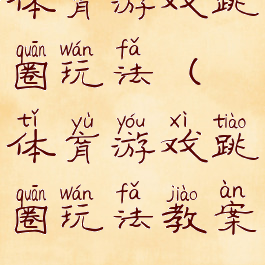 体育游戏跳
quān wán fǎ
圈玩法（
tǐ yù yóu xì tiào
体育游戏跳
quān wán fǎ jiào àn
圈玩法教案